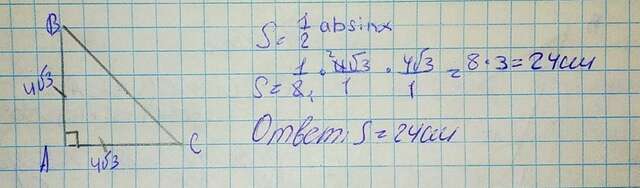 B
4√3
A
4√3
C
S = 1/2 absinx
S = 1/2 · 4√3/1 · 4√3/1 = 8 · 3 = 24см
Ответ: S = 24см